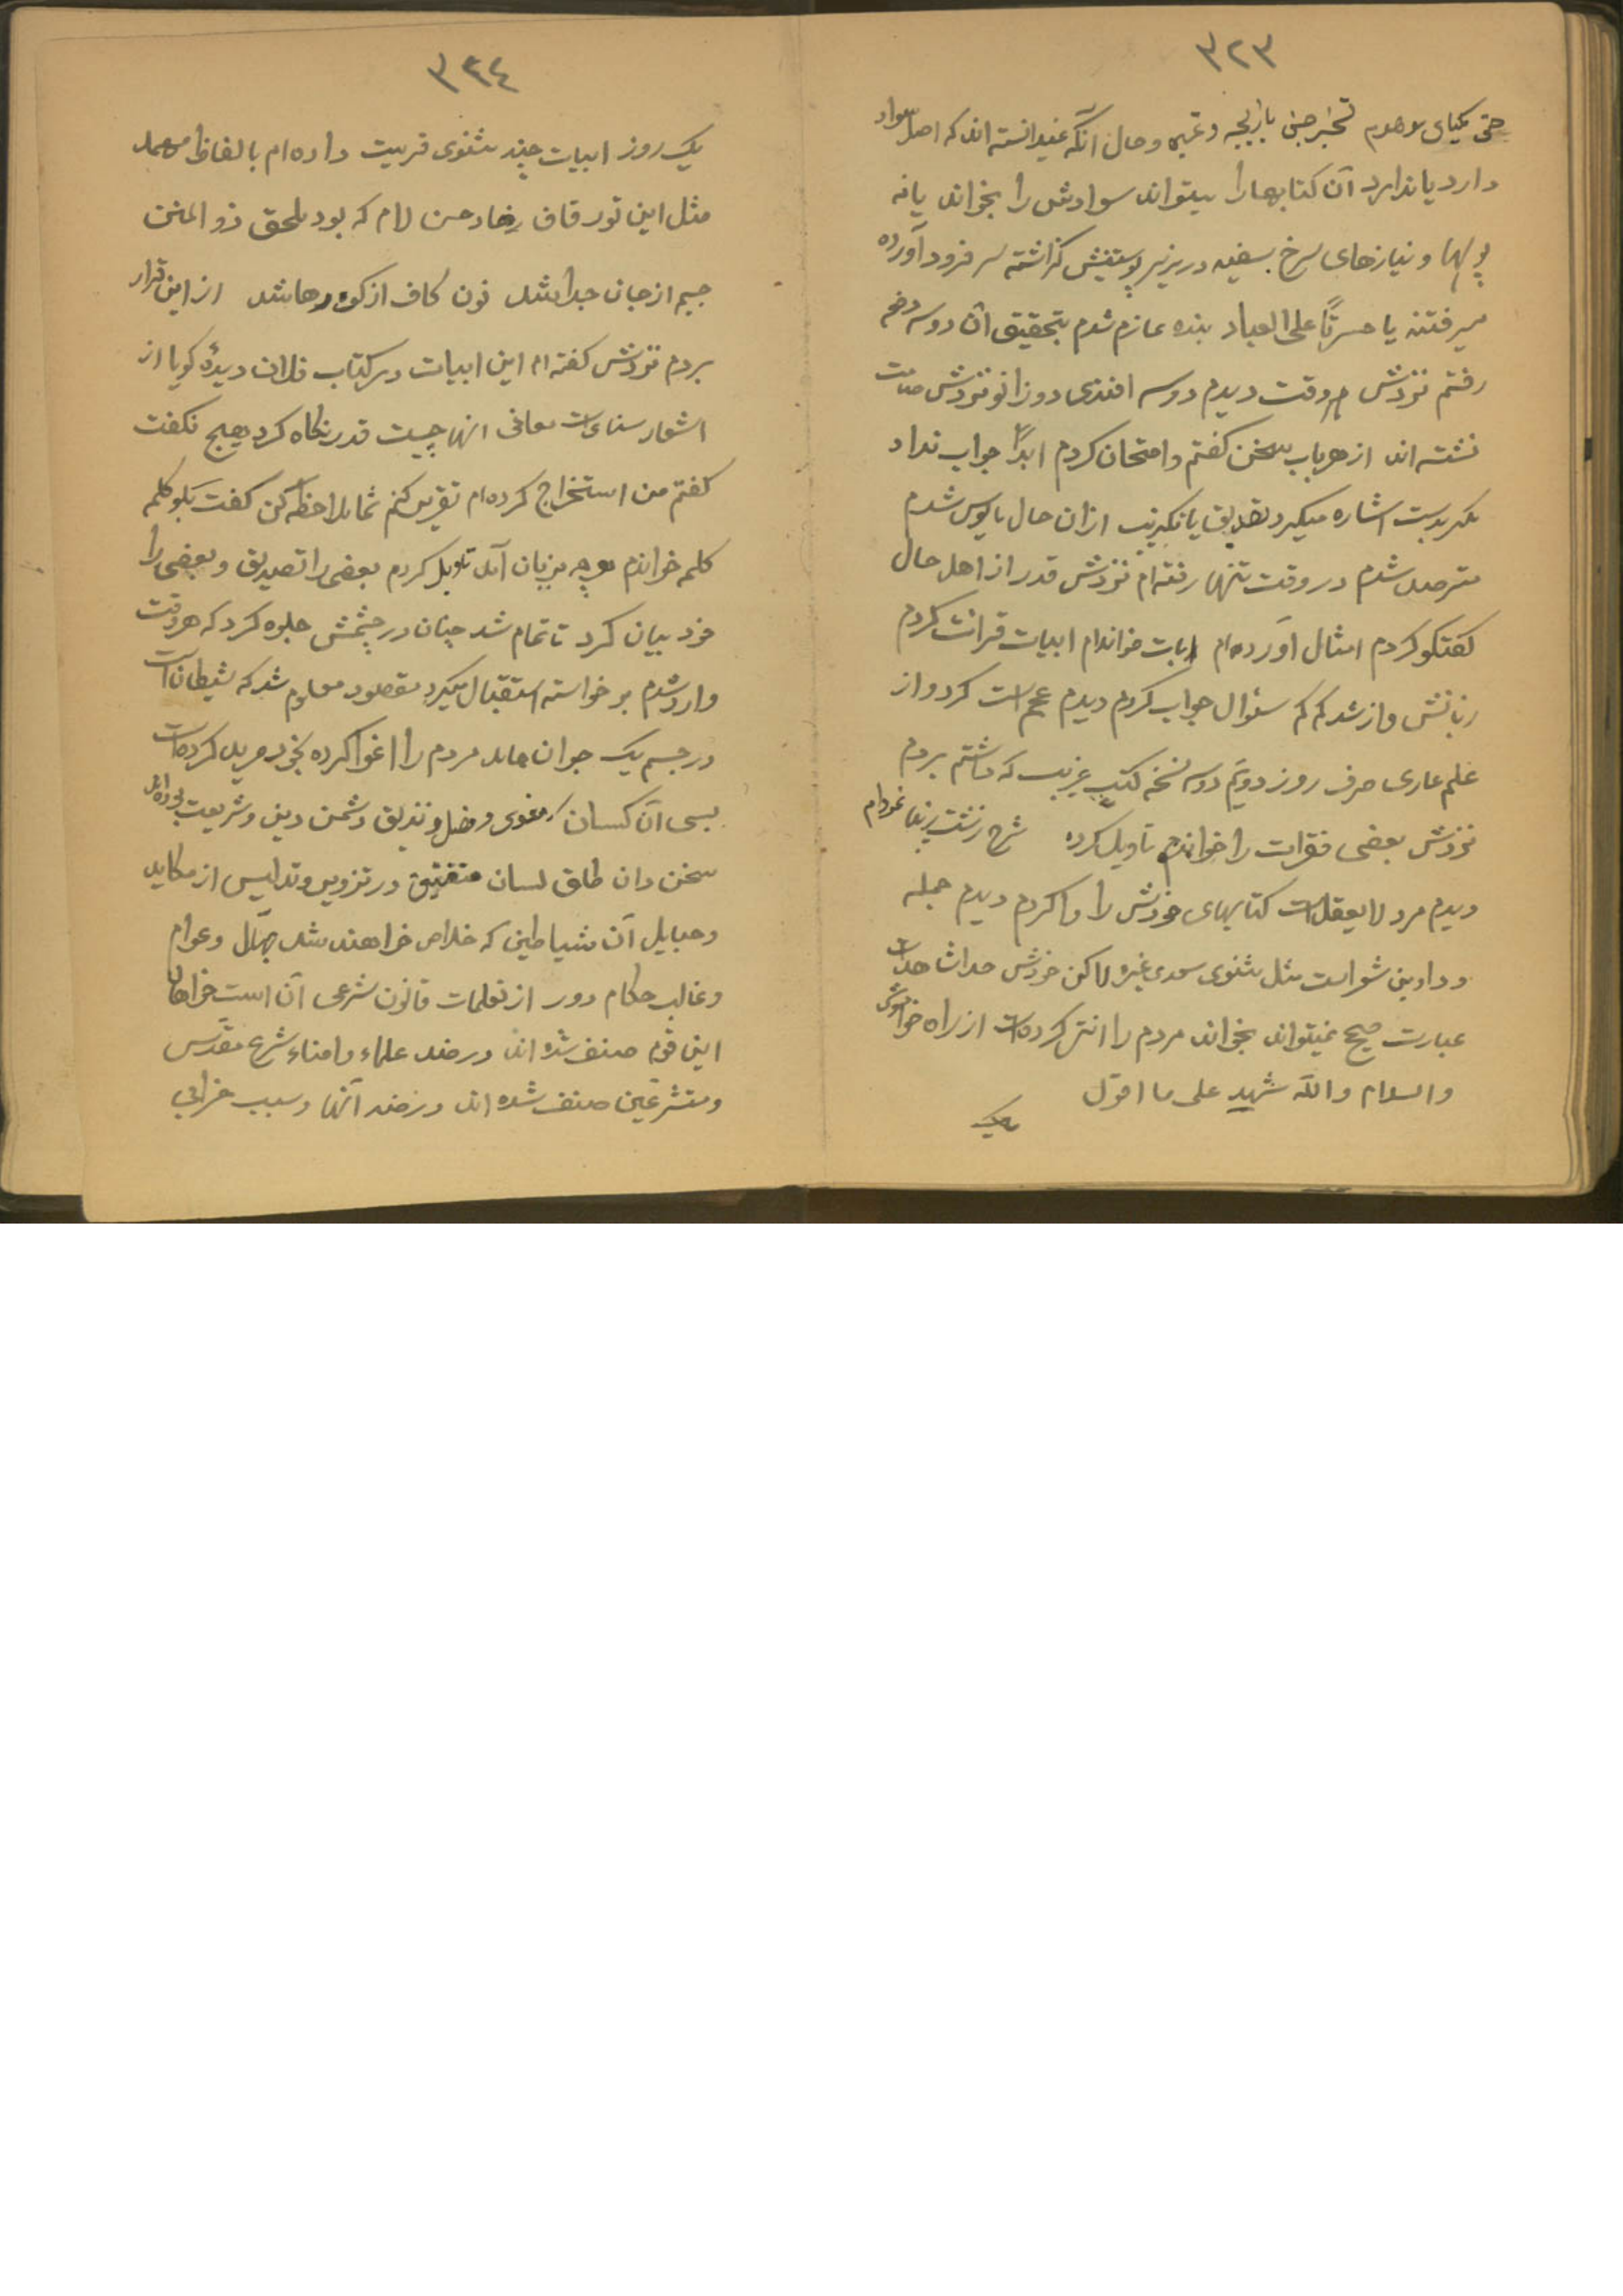 ٣٢٣
حتی کیمیای موهوم تسخیر جنی بازیچه و غیره و حال آنکه نمیدانسته اند که اصل سواد
دارد یا ندارد آن کتابها را میتواند سوادش را بخواند یا نه
پولها و نیازهای سرخ بسفید در زیر پوستینش گذاشته سر فرود آورده
میرفتند یا حسرتًا علی العباد بنده عازم شدم بتحقیق آن دو سه دفعه
رفتم نزدش هر وقت دیدم دو سه افندی دو زانو نزدش صامت
نشسته اند از هر باب سخن گفتم و امتحان کردم ابدًا جواب نداد
مگر بدست اشاره میکرد تصدیق یا تکذیب ازان حال مایوس شدم
مترصد شدم در وقت تنها رفته ام نزدش قدر از اهل حال
گفتگو کردم امثال آورده ام ابیات خواندام ابیات قرائت کردم
زبانش واز شد کم کم سئوال جواب کردم دیدم عجم است کرد و از
علم عاری صرف روز دویّم دو سه نسخه کتب غریب که داشتم بردم
نزدش بعضی فقرات را خواندم تاویل کرده شرح زشت زیبا نمودام
دیدم مرد لایعقل است کتابهای خودش را وا کردم دیدم جمله
دواوین شعر است مثل مثنوی سعدی غیره لاکن خودش
عبارت صحیح نمیتواند بخواند مردم را انتر کرده است از راه خواموشی
والسلام والله شهید علی ما اقول
یک
٣٢٤
یک روز ابیات چند مثنوی تربیت داده ام بالفاظ مهمل
مثل این تور قاف رضاد حسن لام که بود ملحق ذو المنن
جیم از جان جدا شد نون کاف از کون رها شد از این قرار
بردم نزدش گفته ام این ابیات در کتاب فلان دیدهٔ گویا از
اشعار سنای است معانی انها چیست قدر نگاه کرد هیچ نگفت
گفتم من استخراج کرده ام تقریر کنم شما ملاحظه کن گفت بگو کلمه
کلمه خواندم هر چه بزبان آمد تاویل کردم بعضی را تصدیق و بعضی را
خود بیان کرد تا تمام شد چنان در چشمش جلوه کرد که هر وقت
وارد شدم بر خواسته استقبال میکرد مقصود معلوم شد که شیطان است
در جسم یک جوان مردم را اغوا کرده بخود مرید کرده است
بسی آن کسان مغوی و مضل و زندیق دشمن دین و شریعت بوده اند
سخن دان طلق لسان در تزویر و تدلیس از مکاید
و حبایل آن شیاطین که خلاص خواهند شد جهّال و عوام
و غالب حکام دور از تعلمات قانون شرعی آن است خواهان
این قوم صنف شده اند در ضد علماء و امناء شرع مقدّس
و متشرعین صنف شده اند در ضد آنها و سبب خرابی